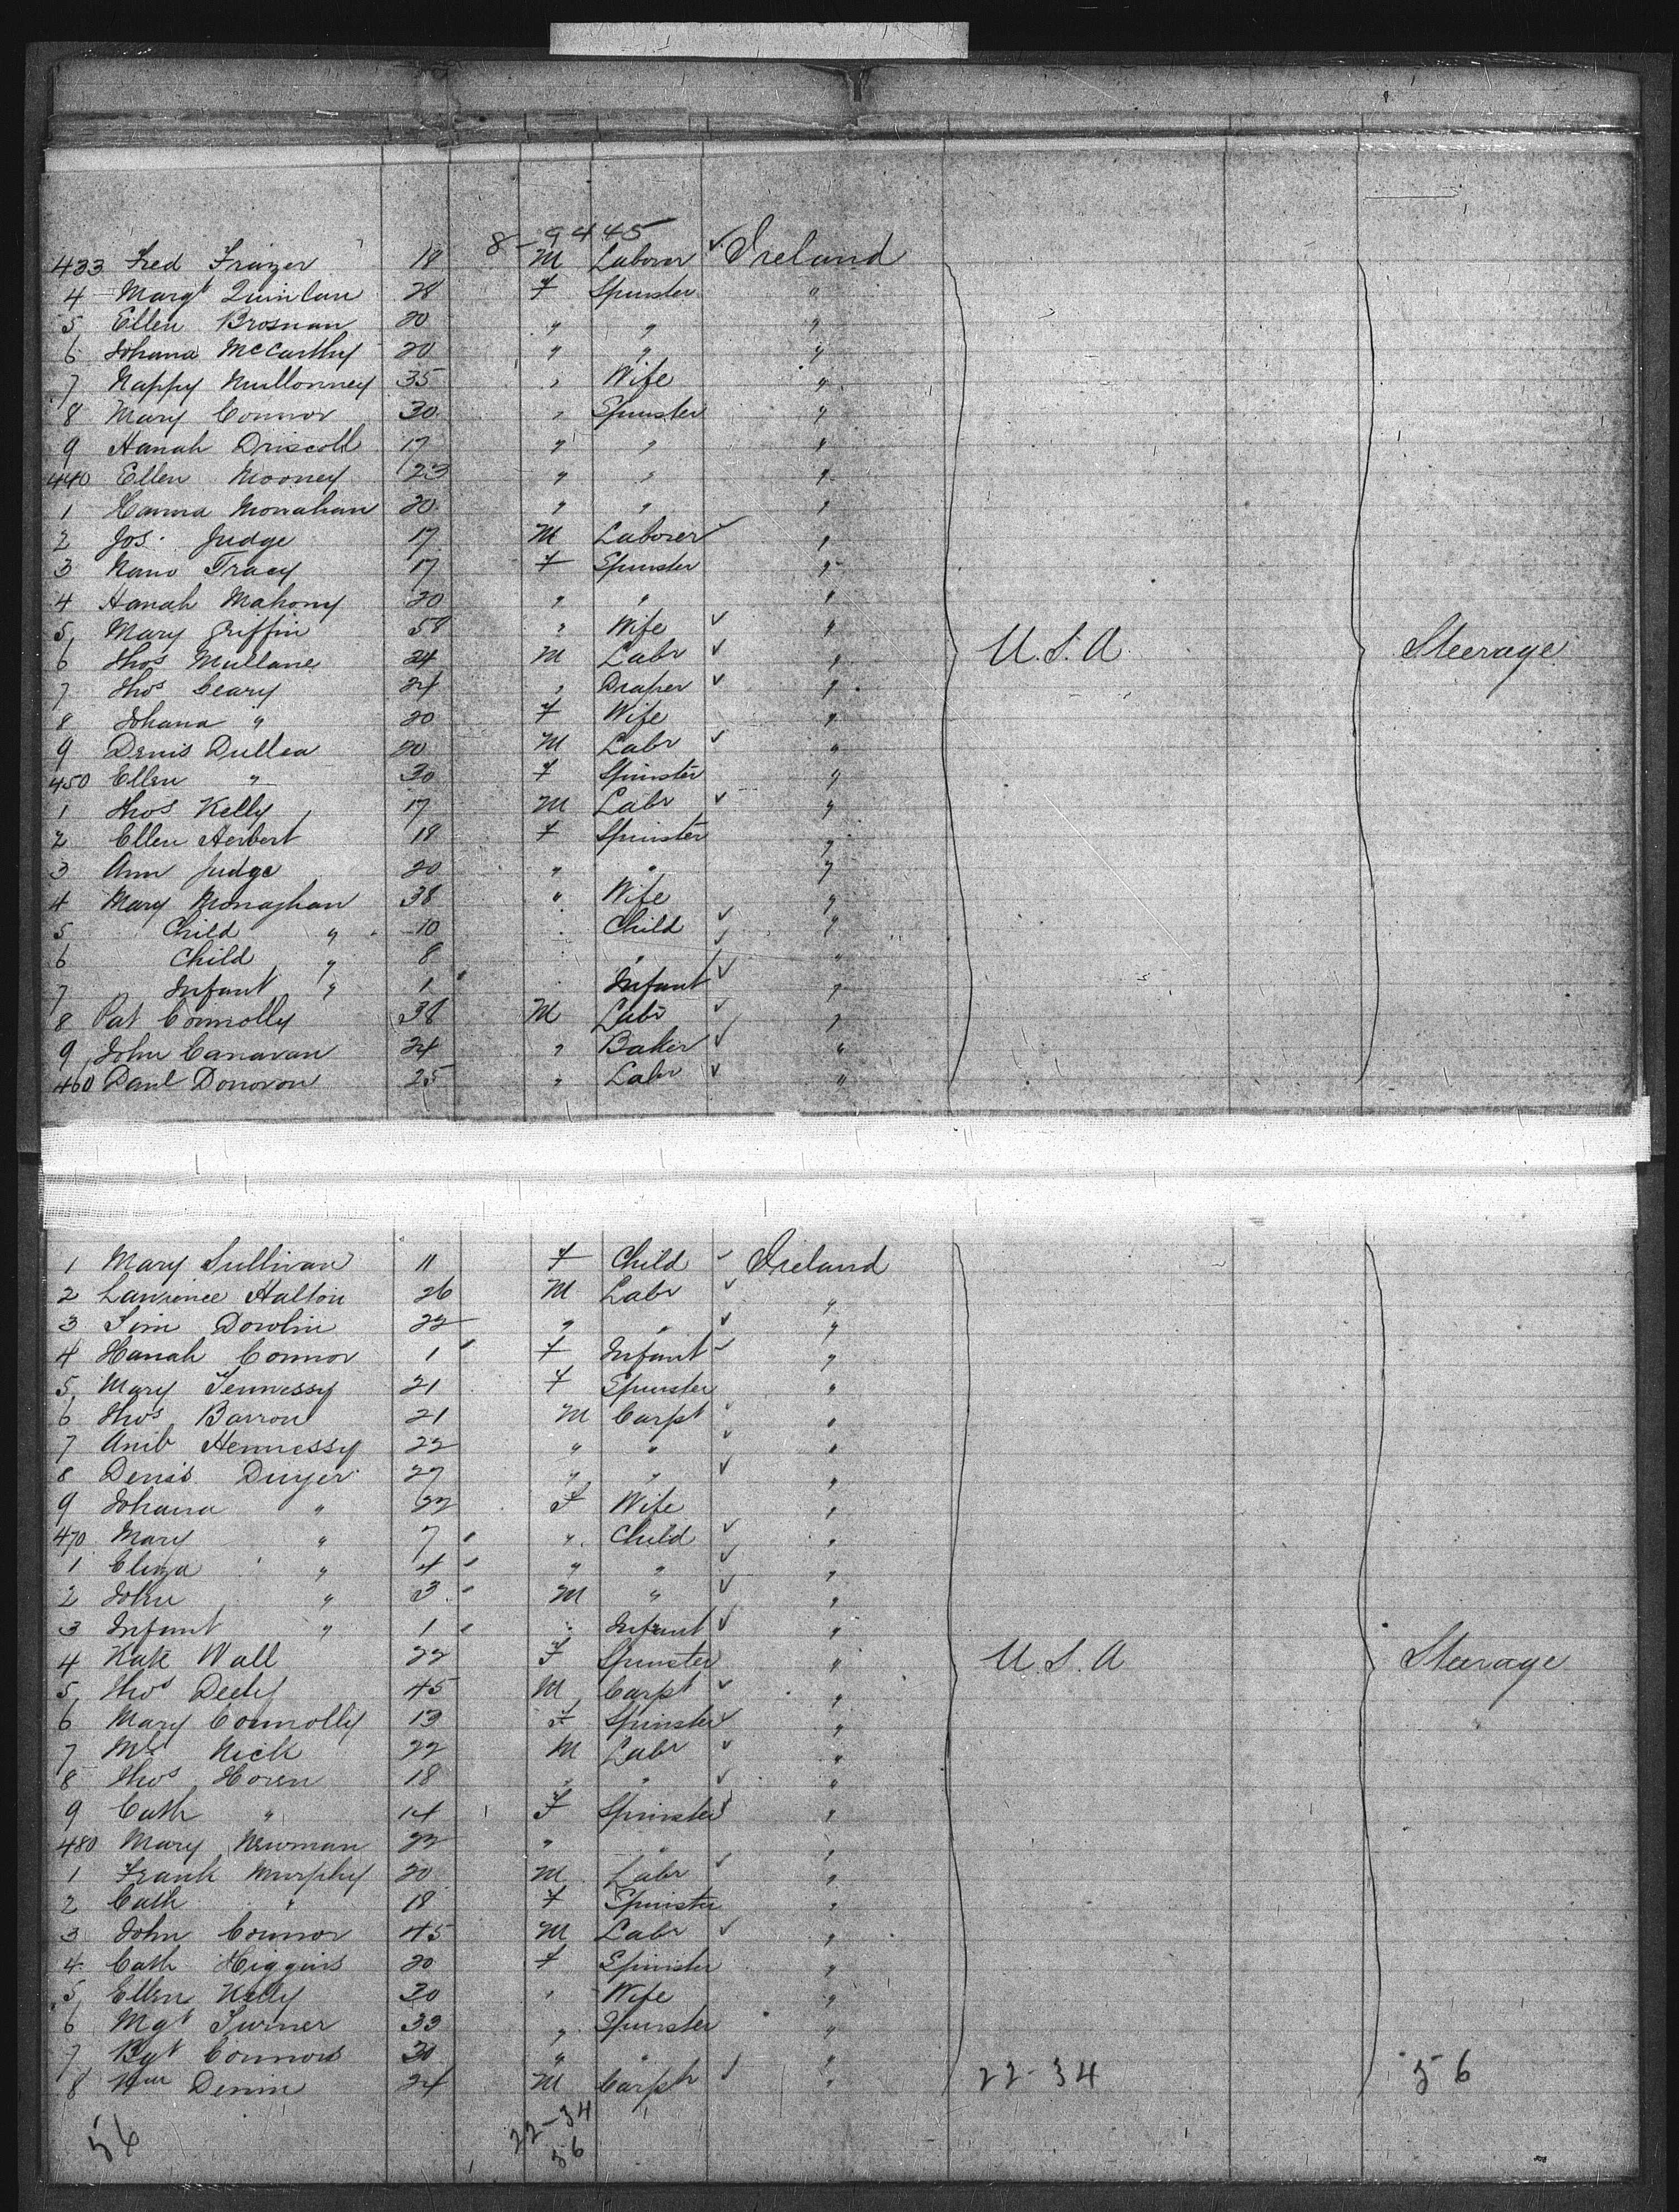 8-9445
433 Fred Frazer 18 M Laborer ✓ Ireland
4 Margt Quinlan 28 F Spinster "
5 Ellen Brosnan 20 " " "
6 Johana McCarthy 20 " " "
7 Nappy Mullonney 35 " Wife "
8 Mary Connor 30 " Spinster "
9 Hanah Driscoll 17 " " "
440 Ellen Mooney 23 " " "
1 Hanna Monahan 20 " " "
2 Jos. Judge 17 M Laborer ✓ "
3 Nano Tracy 17 F Spinster "
4 Hanah Mahony 20 " " "
5 Mary Griffin 58 " Wife ✓ " U.S.A Steerage
6 Thos Mullane 24 M Labr ✓ "
7 Thos Geary 24 " Draper ✓ "
8 Johana " 20 F Wife "
9 Denis Dullea 20 M Labr ✓ "
450 Ellen " 30 F Spinster "
1 Thos Kelly 17 M Labr ✓ "
2 Ellen Herbert 18 F Spinster "
3 Ann Judge 20 " " "
4 Mary Monaghan 38 " Wife "
5 Child " 10 Child ✓ "
6 Child " 8 " ✓ "
7 Infant " 1 Infant ✓ "
8 Pat Connolly 38 M Labr ✓ "
9 John Canavan 24 " Baker ✓ "
460 Danl Donovon 25 " Labr ✓ "
1 Mary Sullivan 11 F Child ✓ Ireland
2 Lawrence Halton 26 M Labr ✓ "
3 Tim Dowlin 22 " " ✓ "
4 Hanah Connor 1 F Infant ✓ "
5 Mary Fennessy 21 F Spinster "
6 Thos Barron 21 M Carpt ✓ "
7 Hennessy 22 " " ✓ "
8 Denis Dwyer 27 " " ✓ "
9 Johana " 22 F Wife "
470 Mary " 7 " Child ✓ "
1 Eliza " 4 " " ✓ "
2 John " 3 M " ✓ "
3 Infant " 1 Infant ✓ "
4 Kate Wall 22 F Spinster " U.S.A Steerage
5 Thos Deely 45 M Carpt ✓ "
6 Mary Connolly 13 F Spinster ✓ "
7 Ml Nick 22 M Labr ✓ "
8 Thos Horen 18 " " ✓ "
9 Cath " 14 F Spinster ✓ "
480 Mary Newman 22 " " "
1 Frank Murphy 20 M Labr ✓ "
2 Cath " 18 F Spinster "
3 John Connor 45 M Labr ✓ "
4 Cath Higgins 20 F Spinster "
5 Ellen Kelly 30 " Wife "
6 Mgt Turner 33 " Spinster "
7 Bgt Connors 30 " " "
8 Wm Denin 24 M Carpt ✓ " 22-34 56
56 22-34
56